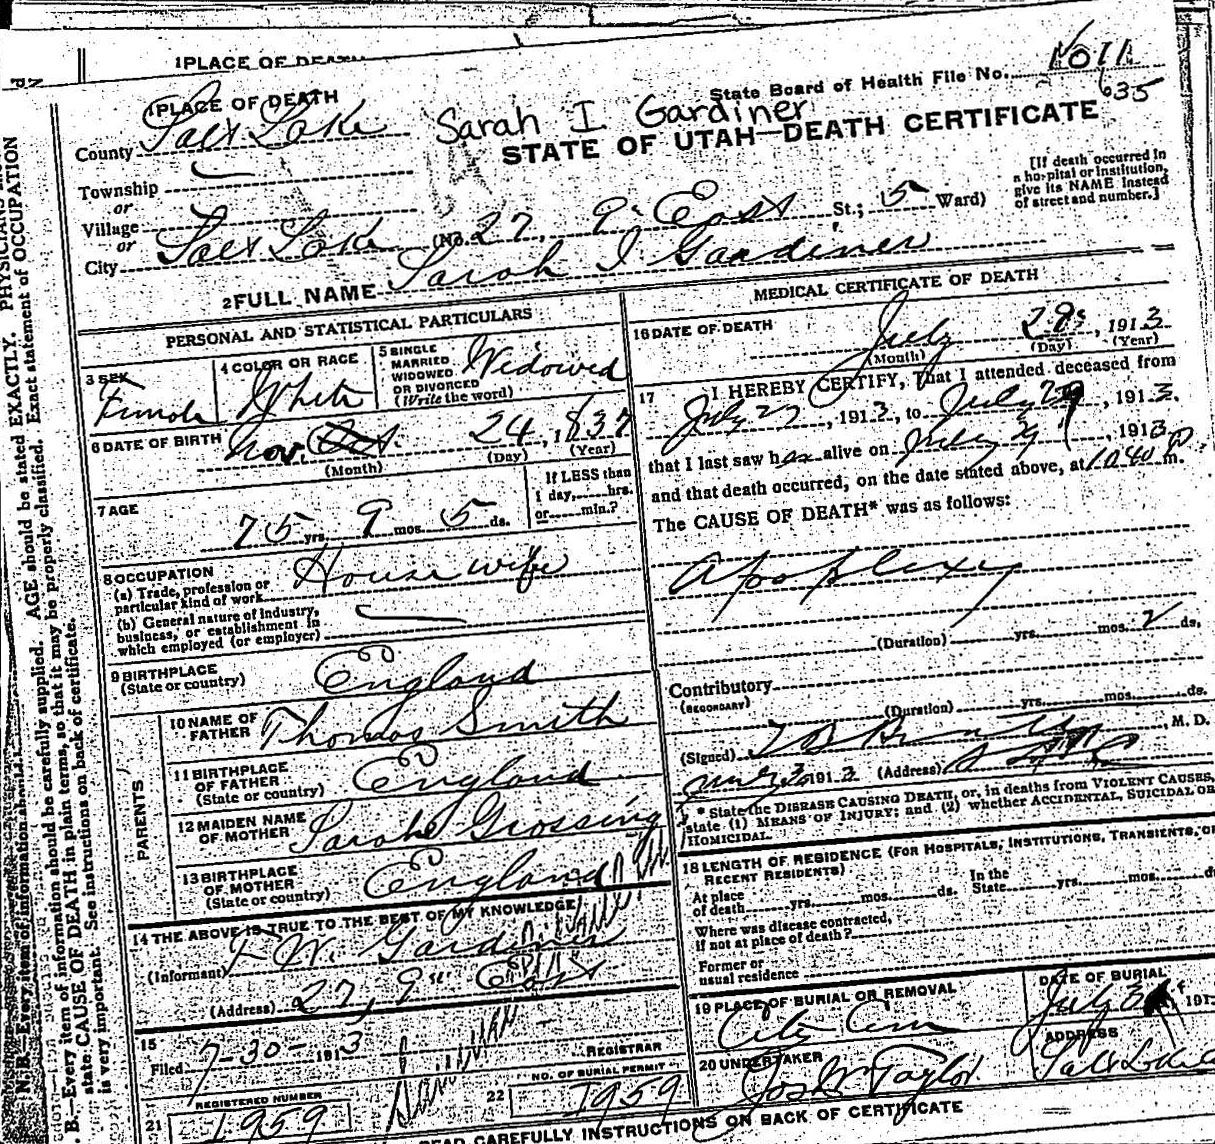 1 PLACE OF DEATH
State Board of Health File No.
635
1 PLACE OF DEATH
Sarah I Gardiner
STATE OF UTAH—DEATH CERTIFICATE
County Salt Lake
Township
or
Village
or
City Salt Lake (No. 27, 9" East St.; 5 Ward)
[If death occurred in
a hospital or institution,
give its NAME instead
of street and number.]
2 FULL NAME Sarah I Gardiner
PERSONAL AND STATISTICAL PARTICULARS
3 SEX
Female
4 COLOR OR RACE
White
5 SINGLE
MARRIED
WIDOWED
OR DIVORCED
(Write the word)
Widowed
6 DATE OF BIRTH
Nov. Oct. 24, 1837
(Month) (Day) (Year)
7 AGE
75 yrs. 9 mos. 5 ds.
If LESS than
1 day, hrs.
or min.?
8 OCCUPATION
(a) Trade, profession or
particular kind of work
Housewife
(b) General nature of industry,
business, or establishment in
which employed (or employer)
9 BIRTHPLACE
(State or country)
England
PARENTS
10 NAME OF
FATHER
Thomas Smith
11 BIRTHPLACE
OF FATHER
(State or country)
England
12 MAIDEN NAME
OF MOTHER
Sarah Grossing
13 BIRTHPLACE
OF MOTHER
(State or country)
England
14 THE ABOVE IS TRUE TO THE BEST OF MY KNOWLEDGE
(Informant) F. W. Gardiner
(Address) 27, 9" East
15
Filed 7-30- 1913
REGISTRAR
REGISTERED NUMBER
21 1959
NO. OF BURIAL PERMIT
22 1959
MEDICAL CERTIFICATE OF DEATH
16 DATE OF DEATH
July 29, 1913
(Month) (Day) (Year)
17 I HEREBY CERTIFY, That I attended deceased from
July 27, 1913, to July 29, 1913.
that I last saw her alive on July 29, 1913
and that death occurred, on the date stated above, at 10 40 P m.
The CAUSE OF DEATH* was as follows:
Apoplexy
(Duration) yrs. mos. 2 ds.
Contributory
(SECONDARY)
(Duration) yrs. mos. ds.
(Signed) M. D.
1913 (Address)
* State the DISEASE CAUSING DEATH, or, in deaths from VIOLENT CAUSES,
state (1) MEANS OF INJURY; and (2) whether ACCIDENTAL, SUICIDAL OR
HOMICIDAL.
18 LENGTH OF RESIDENCE (FOR HOSPITALS, INSTITUTIONS, TRANSIENTS, OR
RECENT RESIDENTS)
At place
of death yrs. mos. ds.
In the
State yrs. mos.
Where was disease contracted,
if not at place of death?
Former or
usual residence
19 PLACE OF BURIAL OR REMOVAL
City Cem
DATE OF BURIAL
July 191
20 UNDERTAKER
Jos W Taylor
ADDRESS
Salt Lake
READ CAREFULLY INSTRUCTIONS ON BACK OF CERTIFICATE
N.B.—Every item of information should be carefully supplied. AGE should be stated EXACTLY. PHYSICIANS
state CAUSE OF DEATH in plain terms, so that it may be properly classified. Exact statement of OCCUPATION
is very important. See instructions on back of certificate.